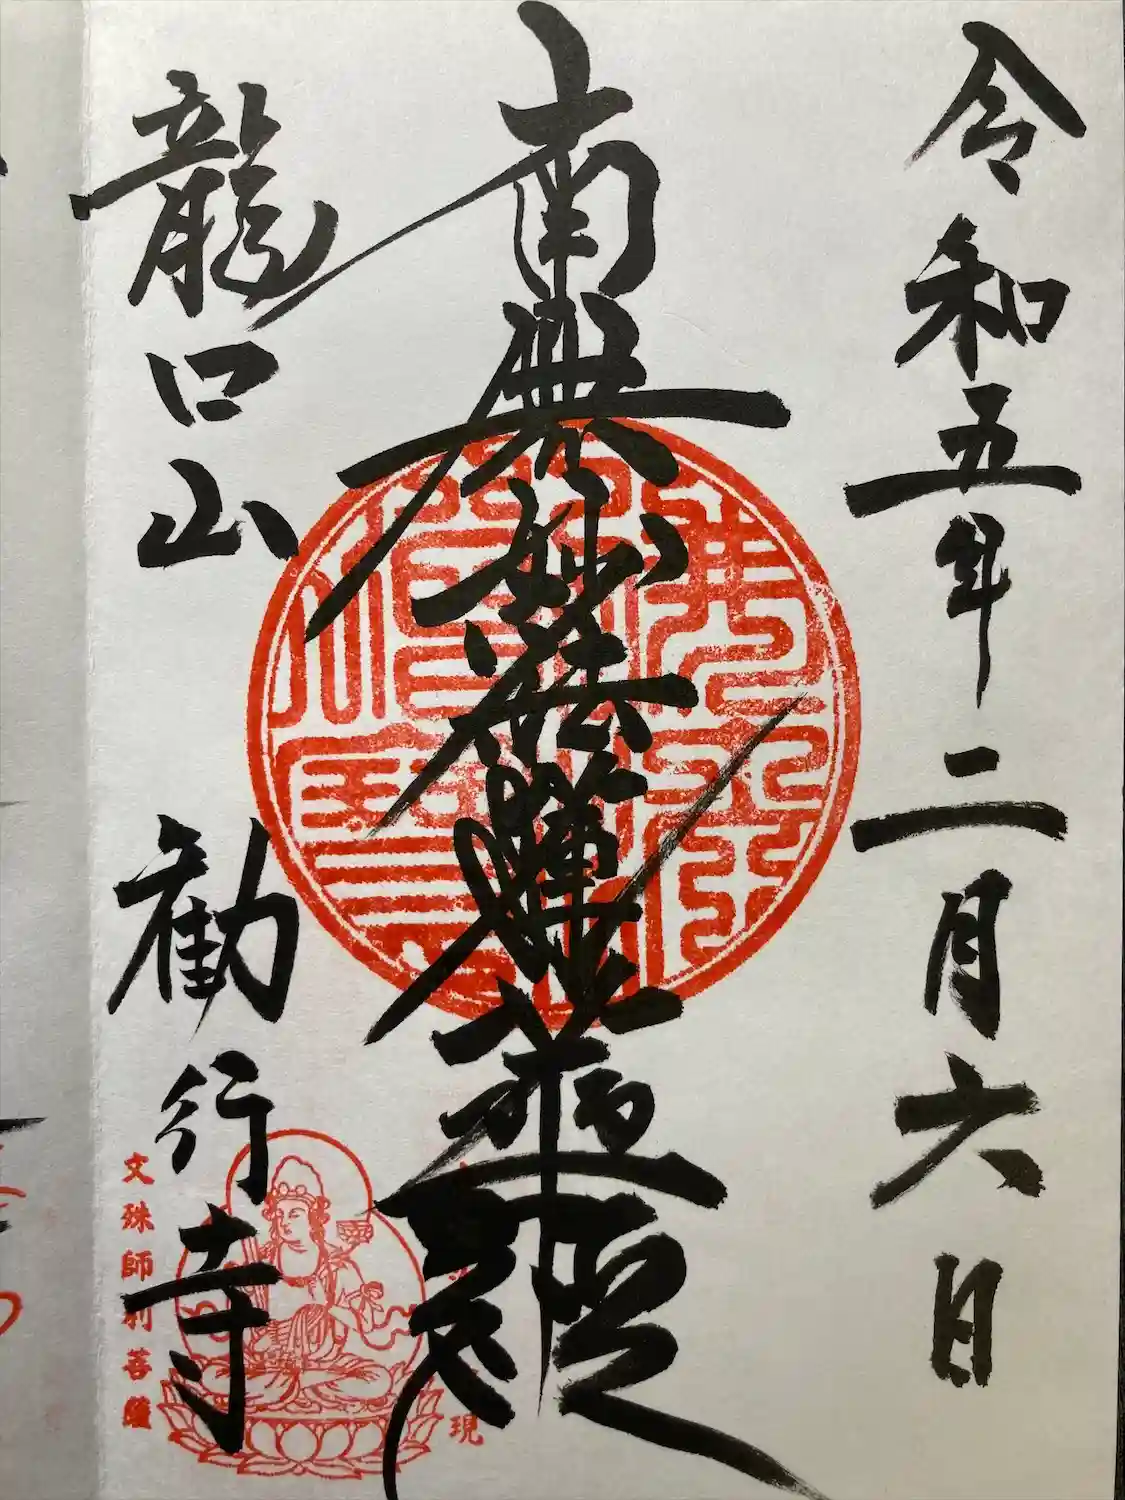 令和五年二月六日
南無妙法蓮華経
龍口山 勧行寺
文殊師利菩薩
現